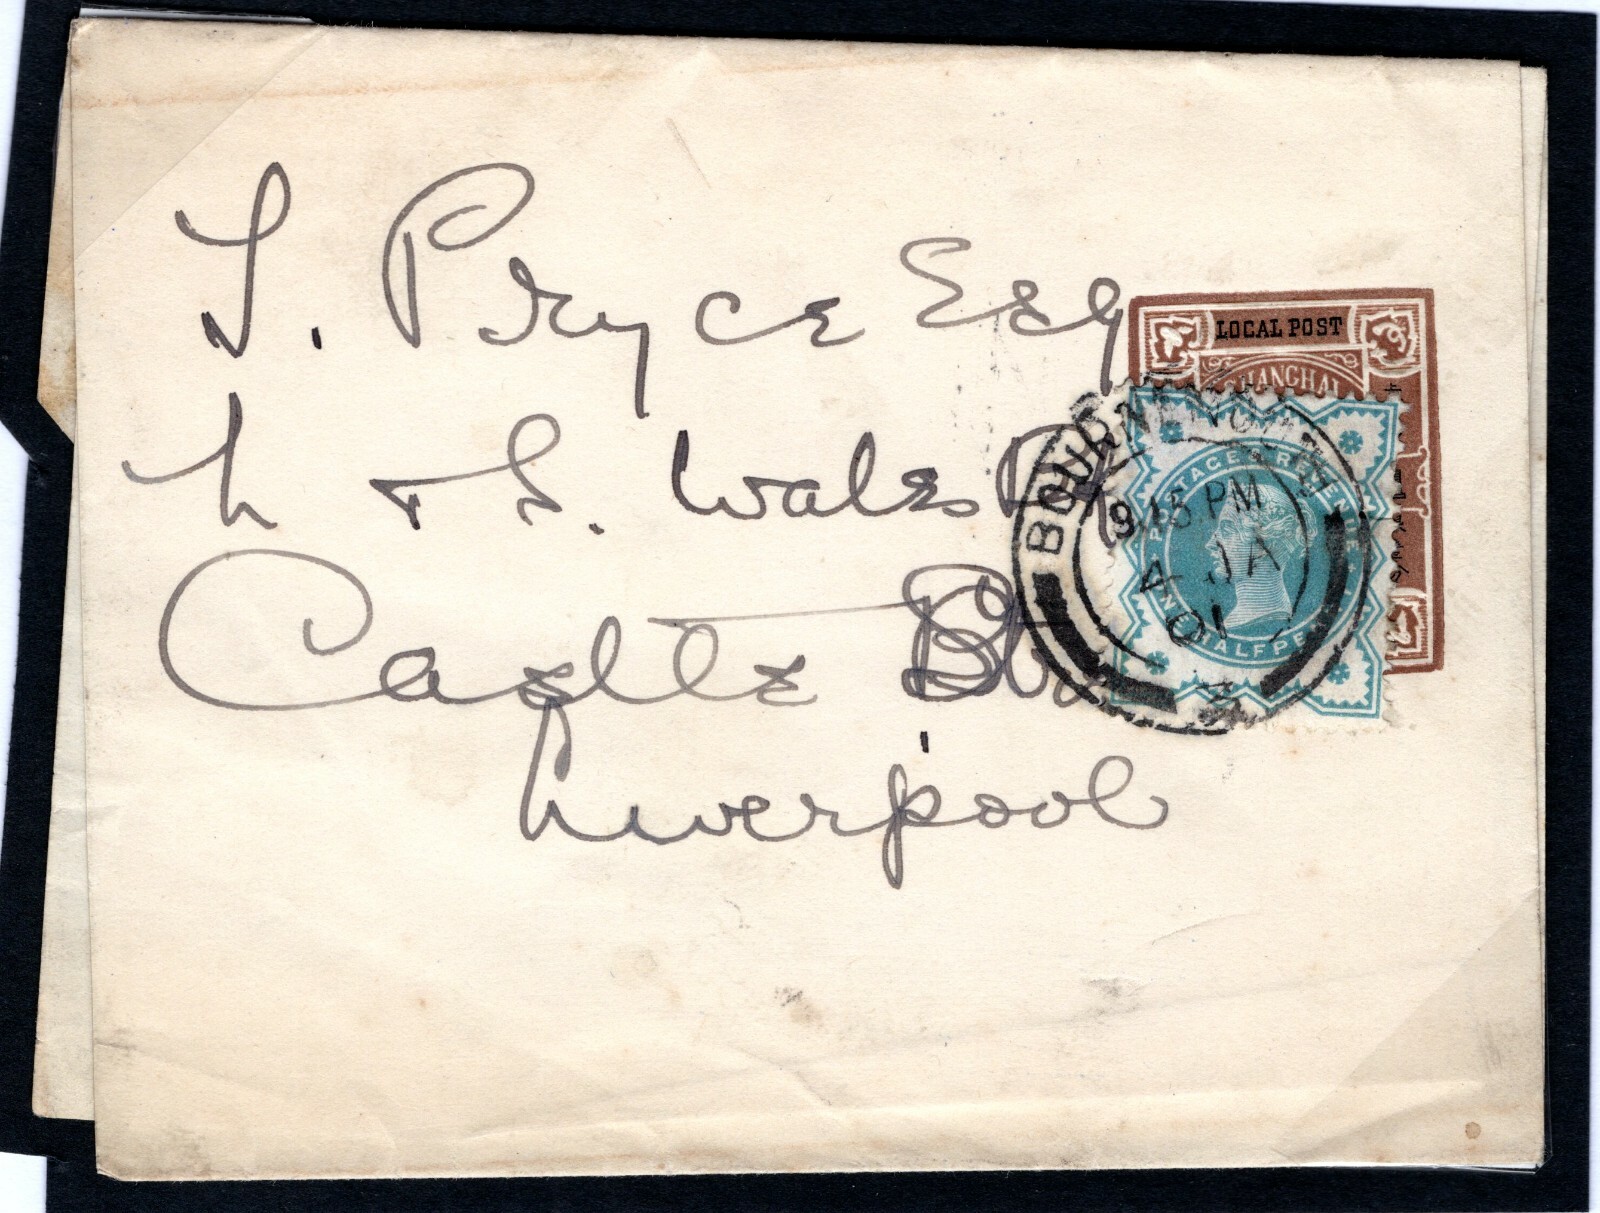 T. Pryce Esq
N & S. Wales Bk
Castle St
Liverpool
LOCAL POST
SHANGHAI
POSTAGE & REVENUE
ONE HALFPENNY
BOURNEMOUTH
9.15 PM
4 JA
01